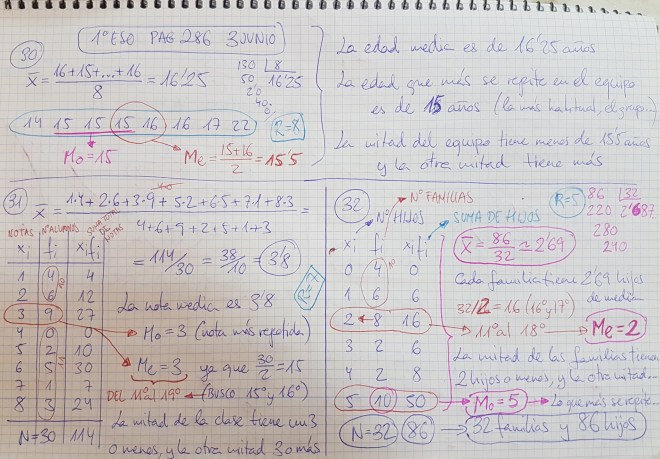 1º ESO PAG 286 3 JUNIO
30
x̄ = 16+15+...+16 / 8 = 16'25
130 | 8
50 16'25
20
40
0
14 15 15 15 16 16 17 22
R=8
Mo=15
Me = 15+16 / 2 = 15'5
La edad media es de 16'25 años
La edad que más se repite en el equipo
es de 15 años (la más habitual, el grupo...)
La mitad del equipo tiene menos de 15'5 años
y la otra mitad tiene más
31
x̄ = 1·4+2·6+3·9+5·2+6·5+7·1+8·3 / 4+6+9+2+5+1+3 =
= 114/30 = 38/10 = 3'8
NOTAS Nº ALUMNOS SUMA TOTAL DE NOTAS
xi fi xifi
1 4 4
2 6 12
3 9 27
4 0 0
5 2 10
6 5 30
7 1 7
8 3 24
N=30 114
R=7
La nota media es 3'8
Mo=3 (nota más repetida)
Me=3 ya que 30/2 = 15
DEL 11º al 19º (BUSCO 15º y 16º)
La mitad de la clase tiene un 3
o menos, y la otra mitad 3 o más
32
Nº FAMILIAS
Nº HIJOS SUMA DE HIJOS
xi fi xifi
0 4 0
1 6 6
2 8 16
3 2 6
4 2 8
5 10 50
N=32 86 32 familias y 86 hijos
R=5
86 | 32
220 2'687
280
240
x̄ = 86/32 ≃ 2'69
Cada familia tiene 2'69 hijos
de media
32/2 = 16 (16º y 17º)
11º al 18º Me=2
La mitad de las familias tienen
2 hijos o menos, y la otra mitad...
Mo=5 Lo que más se repite...